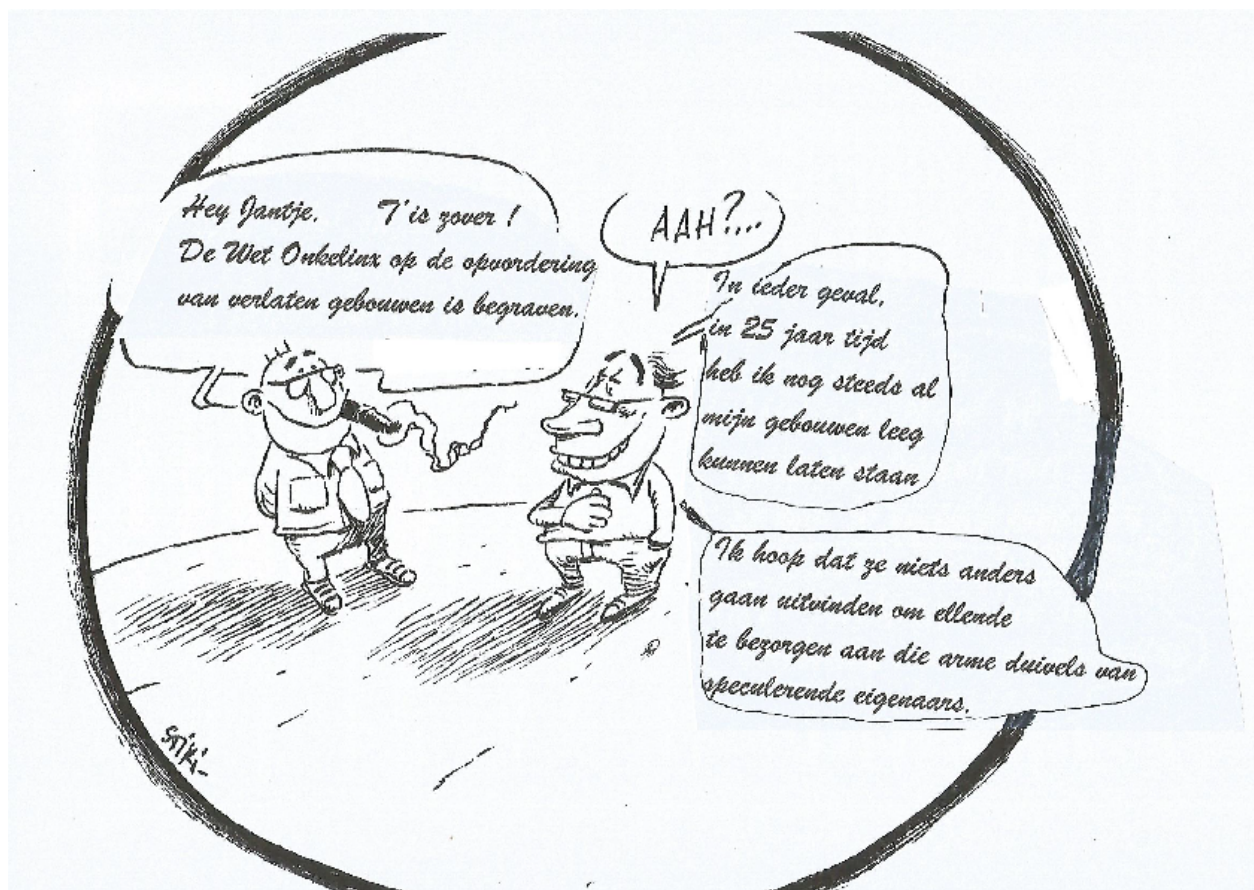 Hey Jantje. T'is zover !
De Wet Onkelinx op de opvordering
van verlaten gebouwen is begraven.
AAH?....
In ieder geval,
in 25 jaar tijd
heb ik nog steeds al
mijn gebouwen leeg
kunnen laten staan
Ik hoop dat ze niets anders
gaan uitvinden om ellende
te bezorgen aan die arme duivels van
speculerende eigenaars.